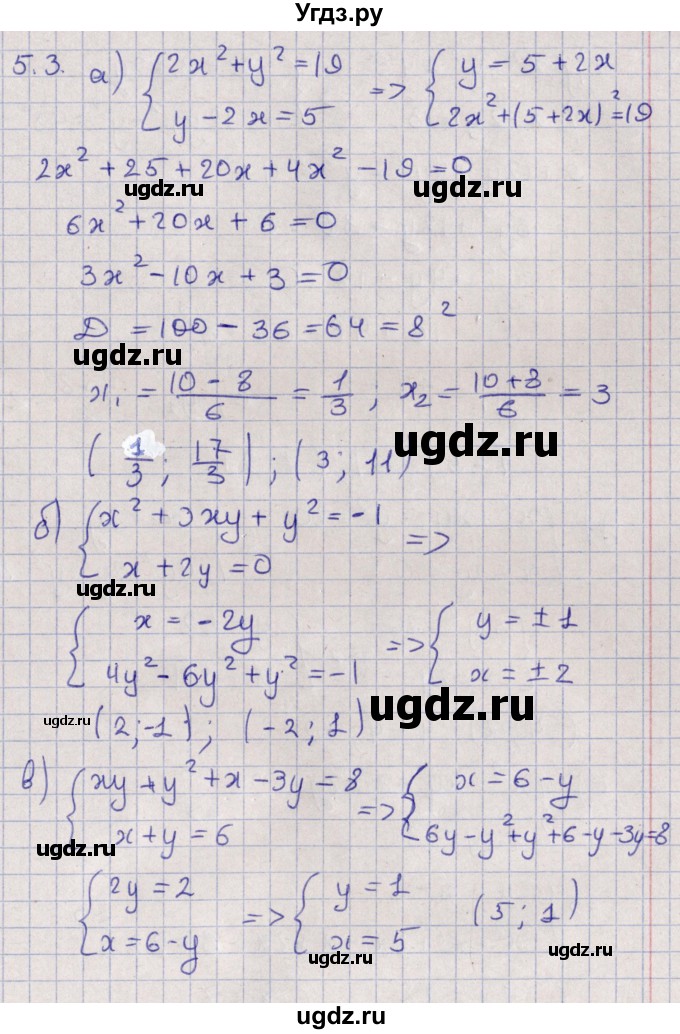 Угдз.ру
5.3. а) { 2x² + y² = 19 => { y = 5 + 2x
y - 2x = 5 2x² + (5 + 2x)² = 19
2x² + 25 + 20x + 4x² - 19 = 0
ugdz.ru ugdz.ru
6x² + 20x + 6 = 0
3x² - 10x + 3 = 0
Д = 100 - 36 = 64 = 8²
ugdz.ru
x₁ = (10 - 8)/6 = 1/3 ; x₂ = (10 + 8)/6 = 3
(1/3 ; 17/3) ; (3 ; 11)
ugdz.ru
б) { x² + 3xy + y² = -1 =>
x + 2y = 0
ugdz.ru
{ x = -2y => { y = ± 1
4y² - 6y² + y² = -1 x = ± 2
ugdz.ru
ugdz.ru (2; -1) ; (-2 ; 1)
в) { xy + y² + x - 3y = 8 => { x = 6 - y
x + y = 6 6y - y² + y² + 6 - y - 3y = 8
ugdz.ru
{ 2y = 2 => { y = 1 (5 ; 1)
x = 6 - y x = 5
ugdz.ru ugdz.ru
ugdz.ru